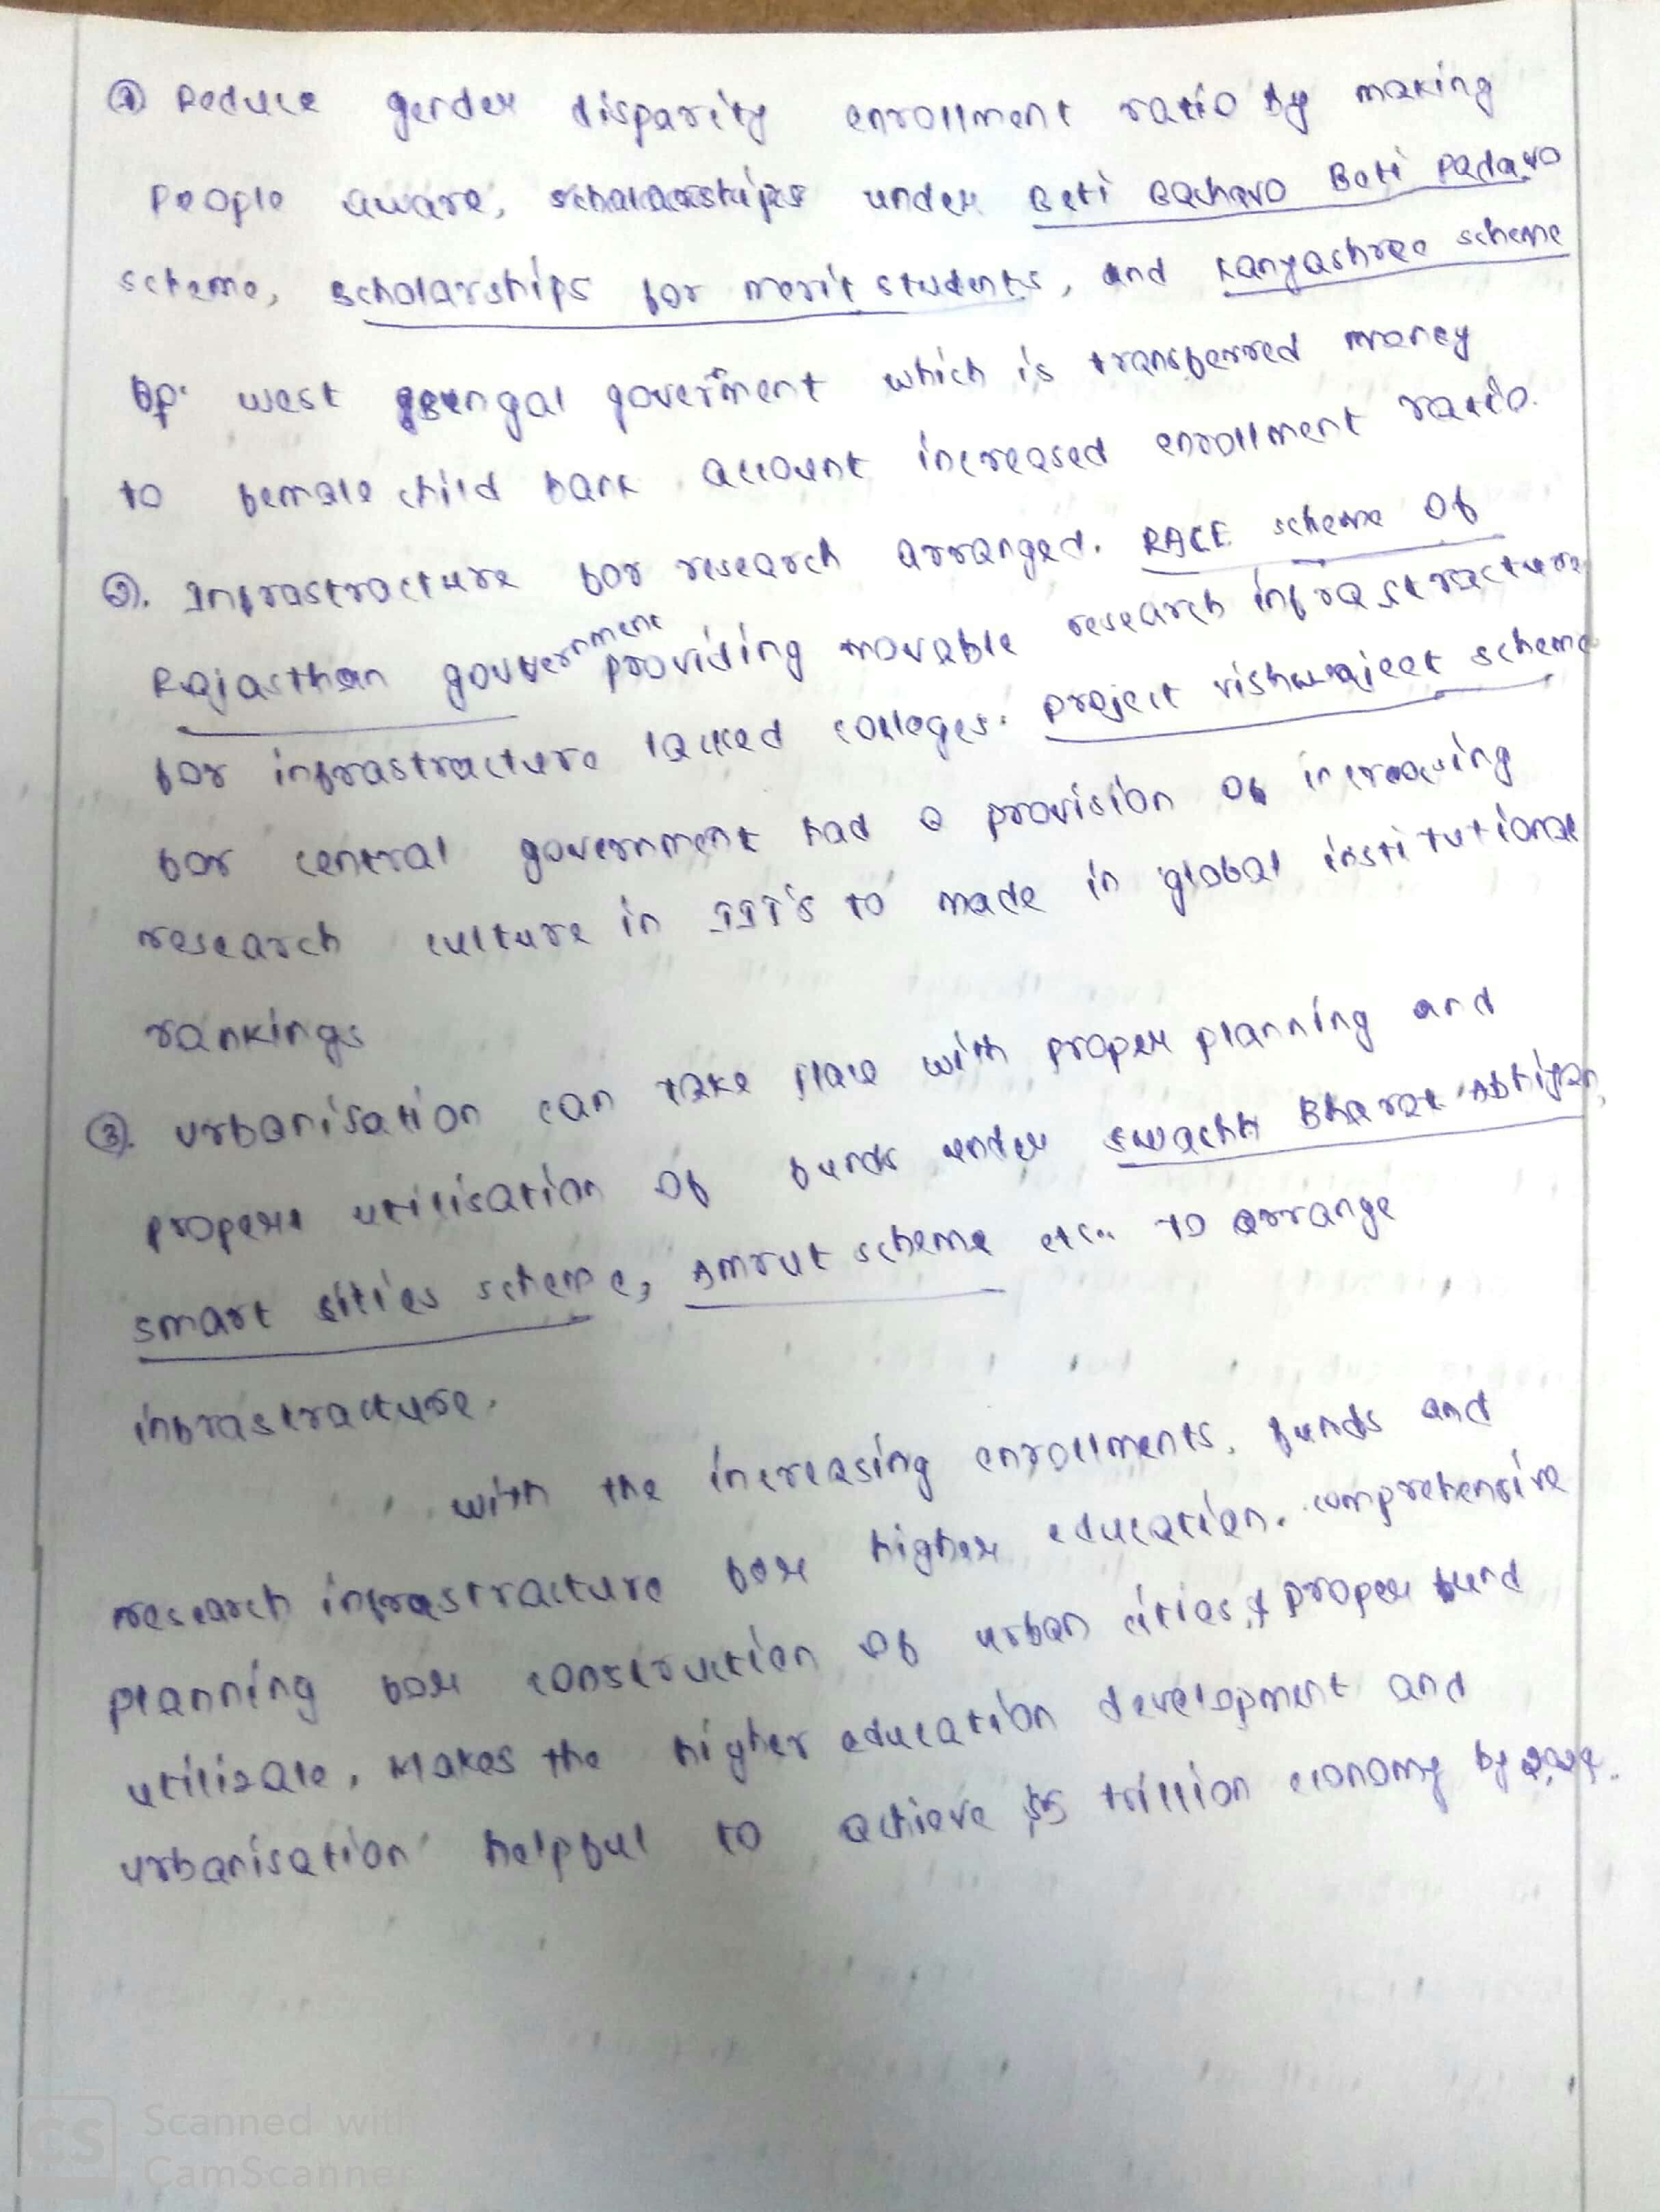 ① Reduce gender disparity enrollment ratio by making
People aware, scholarships under Beti Bachavo Beti Padavo
scheme, scholarships for merit students, and Kanyashree scheme
of west Bengal goverment which is transferred money
to female child bank account increased enrollment ratio.
②. Infrastructure for research arranged. RACE scheme of
Rajasthan government providing movable research infrastructure
for infrastructure lacked colleges. Project vishwajeet scheme
for central government had a provision of increasing
research culture in IIT's to made in global institutional
rankings
③. Urbanisation can take place with proper planning and
proper utilisation of funds under swachh Bharat Abhiyan,
smart sities scheme, Amrut scheme etc.. to arrange
infrastructure.
with the increasing enrollments, funds and
research infrastructure for higher education. comprehensive
planning for construction of urban cities & proper fund
utilizale, Makes the higher education development and
urbanisation helpful to achieve $5 trillion economy by 2024.
CS Scanned with
CamScanner